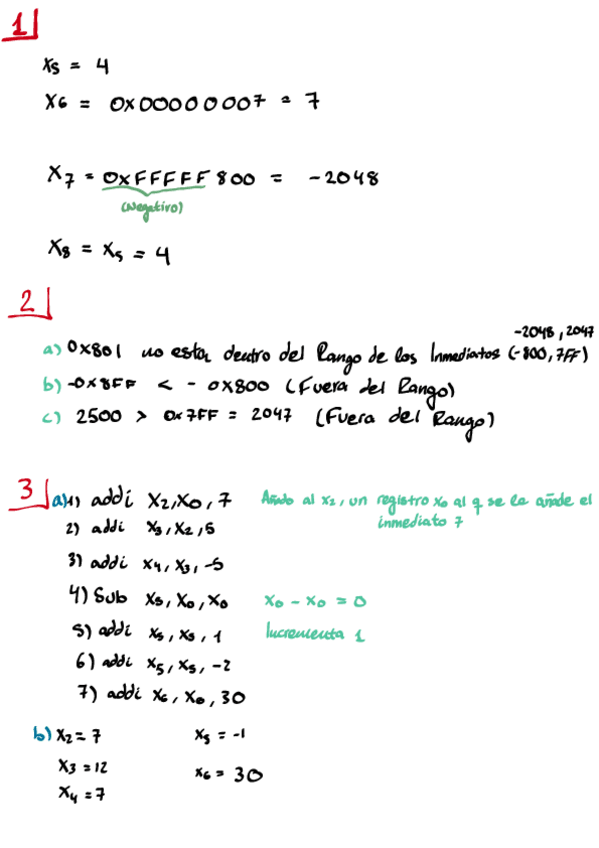 1
x5 = 4
x6 = 0x00000007 = 7
x7 = 0xFFFFF800 = -2048
(Negativo)
x8 = x5 = 4
2
-2048, 2047
a) 0x801 no estar dentro del Rango de los Inmediatos (-800, 7FF)
b) -0x8FF < -0x800 (Fuera del Rango)
c) 2500 > 0x7FF = 2047 (Fuera del Rango)
3
a) 1) addi x2, x0, 7 Añado al x2, un registro x0 al q se le añade el
inmediato 7
2) addi x3, x2, 5
3) addi x4, x3, -5
4) Sub x5, x0, x0 x0 - x0 = 0
5) addi x5, x5, 1 Incrementa 1
6) addi x5, x5, -2
7) addi x6, x0, 30
b) x2 = 7 x5 = -1
x3 = 12 x6 = 30
x4 = 7